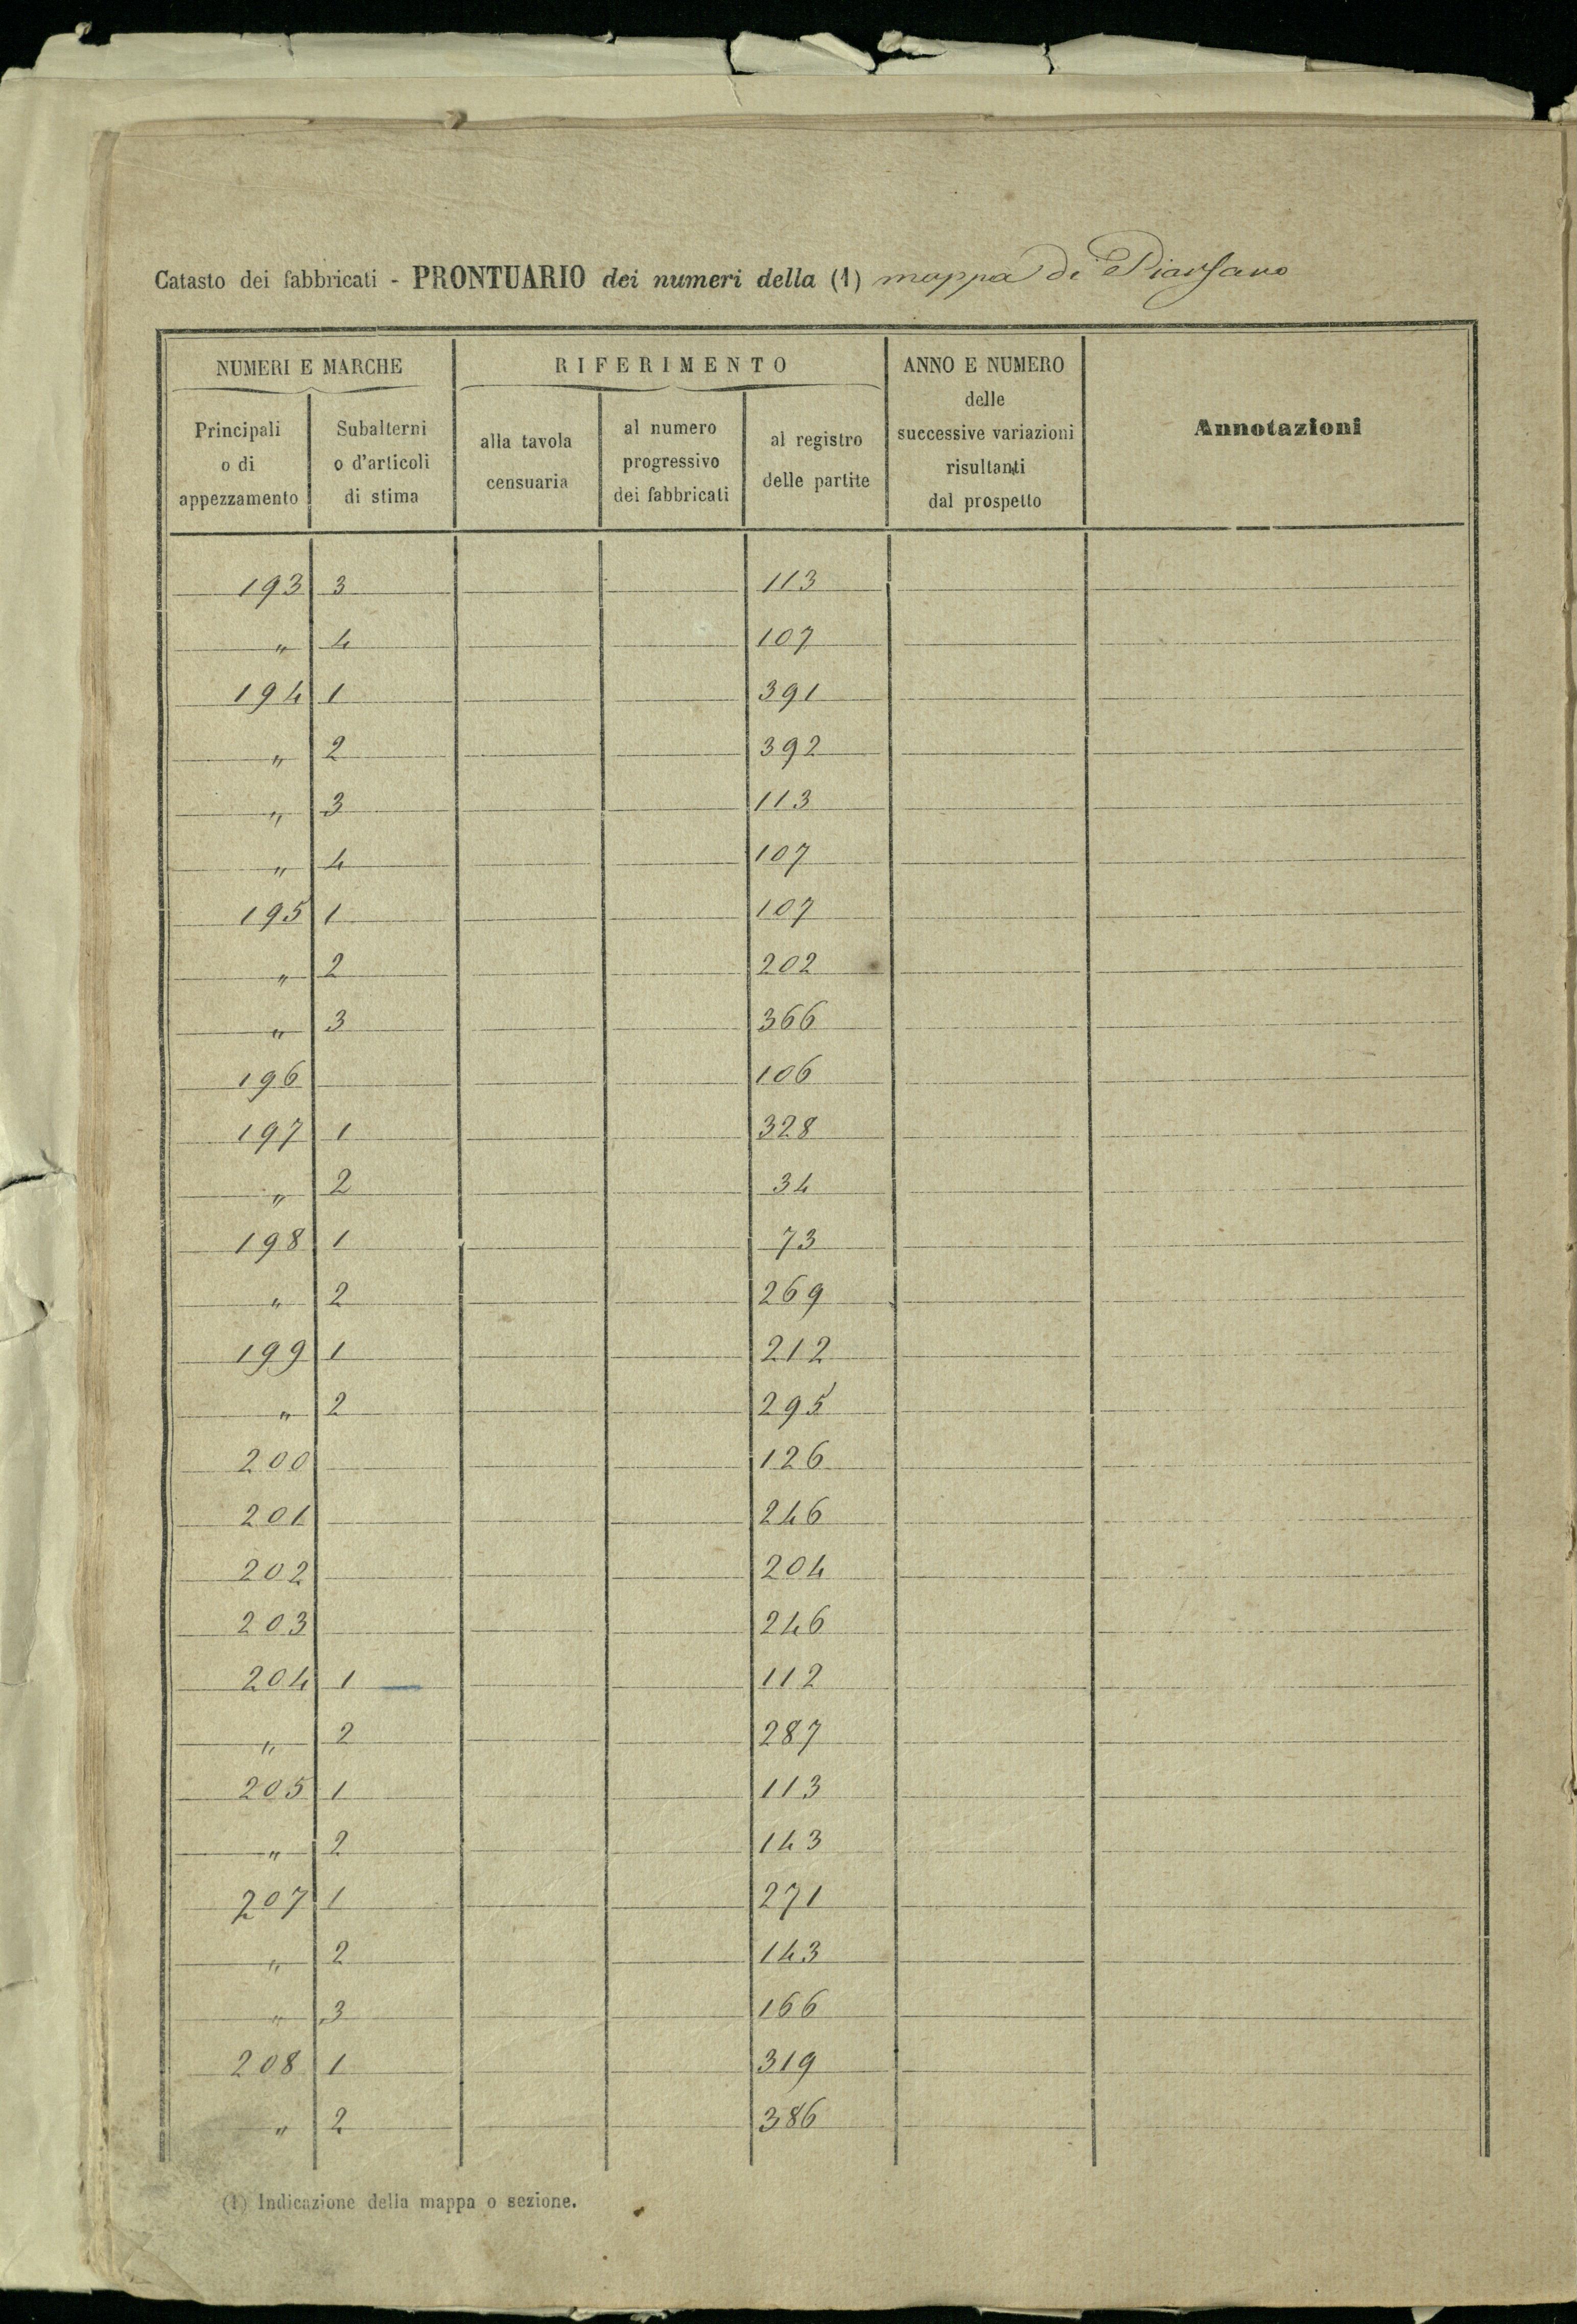 Catasto dei fabbricati - PRONTUARIO dei numeri della (1) mappa di Piansano
NUMERI E MARCHE
RIFERIMENTO
ANNO E NUMERO
delle
successive variazioni
risultanti
dal prospetto
Annotazioni
Principali
o di
appezzamento
Subalterni
o d'articoli
di stima
alla tavola
censuaria
al numero
progressivo
dei fabbricati
al registro
delle partite
193 3 113
" 4 107
194 1 391
" 2 392
" 3 113
" 4 107
195 1 107
" 2 202
" 3 366
196 106
197 1 328
" 2 34
198 1 73
" 2 269
199 1 212
" 2 295
200 126
201 246
202 204
203 246
204 1 112
" 2 287
205 1 113
" 2 143
207 1 271
" 2 143
" 3 166
208 1 319
" 2 386
(1) Indicazione della mappa o sezione.